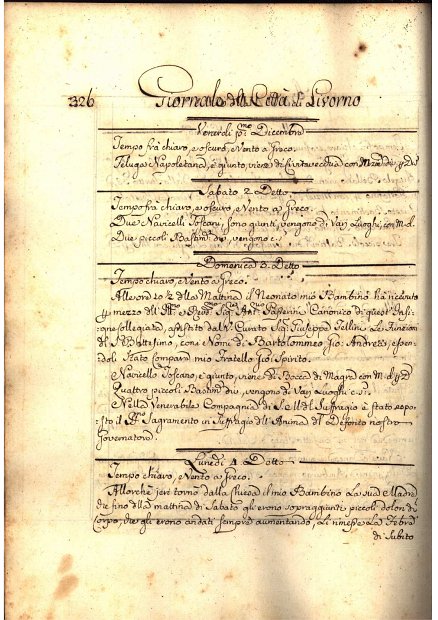 326 Giornale della Città di Livorno
Venerdì p:mo Dicembre
Tempo frà chiaro, e oscuro, e Vento a Greco.
Feluga Napoletana, è giunto, viene di Civitavecchia con
Sabato 2 Detto
Tempo frà chiaro, e oscuro, e Vento a Greco.
Due Navicelli Toscani, sono giunti, vengono di Varj Luoghi, con M. d.
Due piccoli Bastim:ti div: vengono c. s.
Domenica 3 Detto
Tempo chiaro, e Vento a Greco.
Alle ore 10 1/2 della Mattina il Neonato mio Bambino hà ricevuto
mezzo dell' Sig: Ant: Passerini Canonico di quest' Insi:
gne Collegiata, assistito dal Curato Sig: Giuseppe Tellini Le Funzioni
del S. Battesimo, con i Nomi di Bartolommeo Gio: Andrea, essen:
doli Stato Compare mio Fratello Gio: Spirito.
Navicello Toscano, è giunto, viene di Bocca di Magra con M. d.
Quattro piccoli Bastim:ti div: vengono di Varj Luoghi c. s.
Nella Venerabile Compagnia di del Suffragio è Stato espo:
sto il SS. Sagramento in Suffragio dell' Anima del Defonto nostro
Governatore.
Lunedì 4 Detto
Tempo chiaro, e Vento a Greco.
Allorchè jeri tornò dalla Chiesa il mio Bambino La sua Madre
che fino della mattina di Sabato gli erono sopraggiunti piccoli dolori di
Corpo, che gli erono andati sempre aumentando, Li rimesse La Febre
di Subito